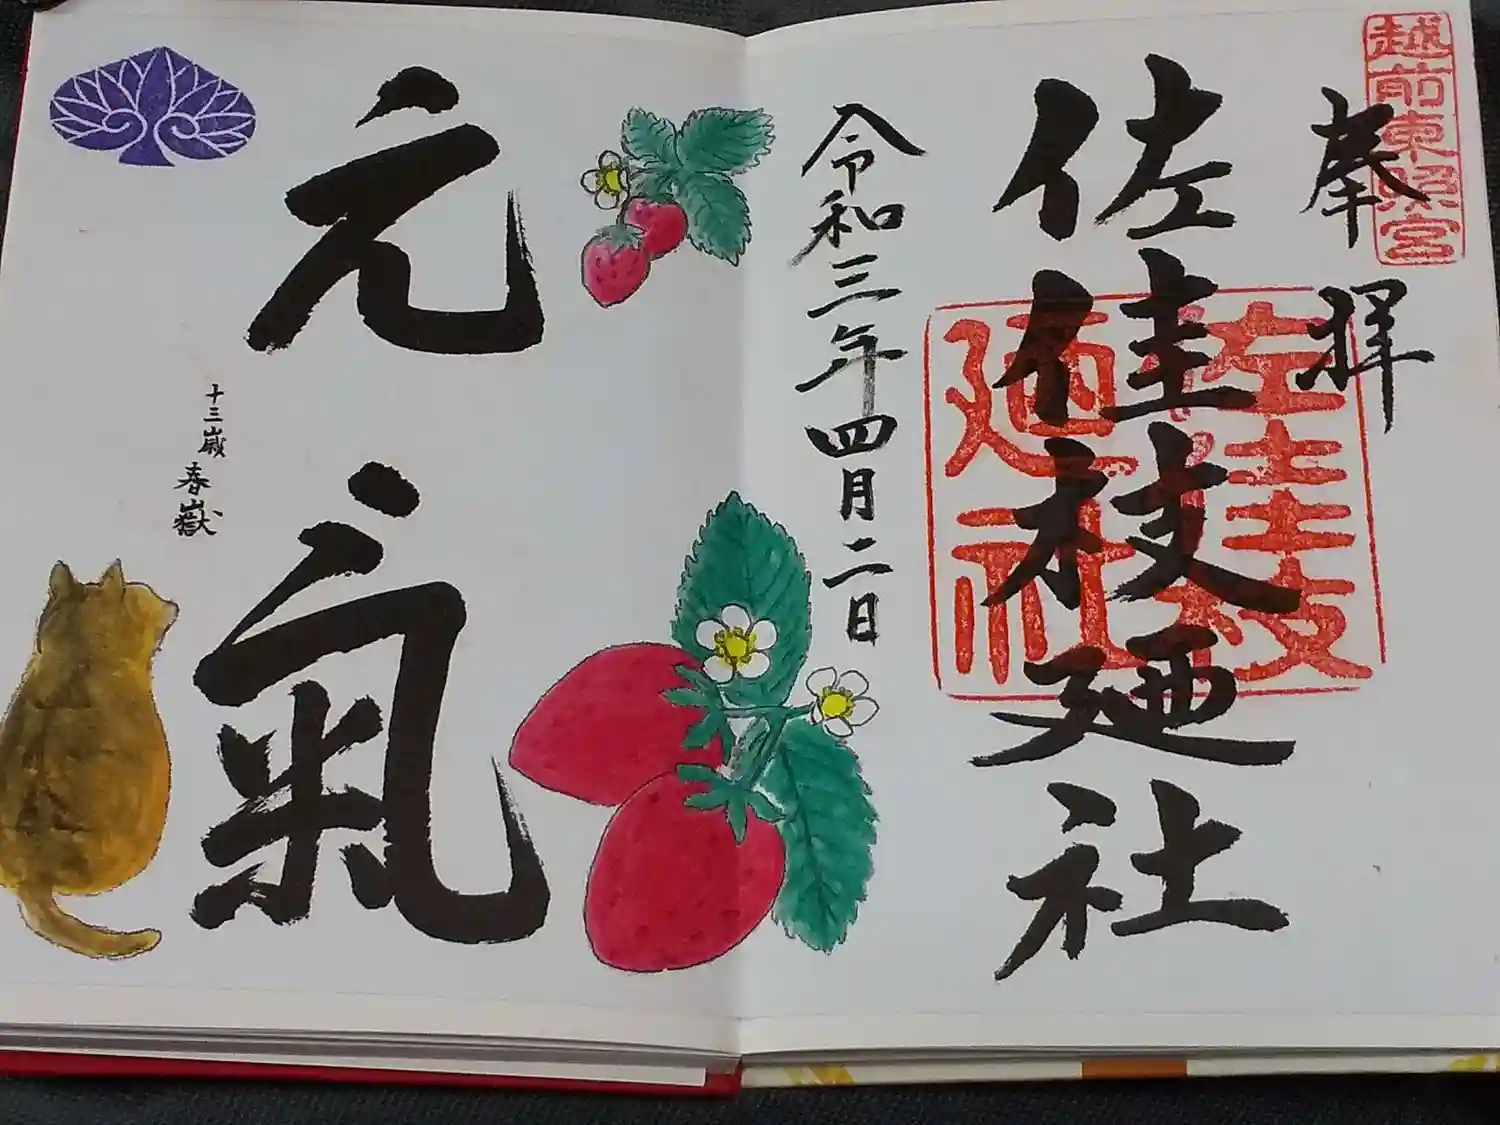 越前東照宮
奉拝
佐佳枝廼社
佐佳枝廼社
令和三年四月二日
元氣
十三歳 春嶽